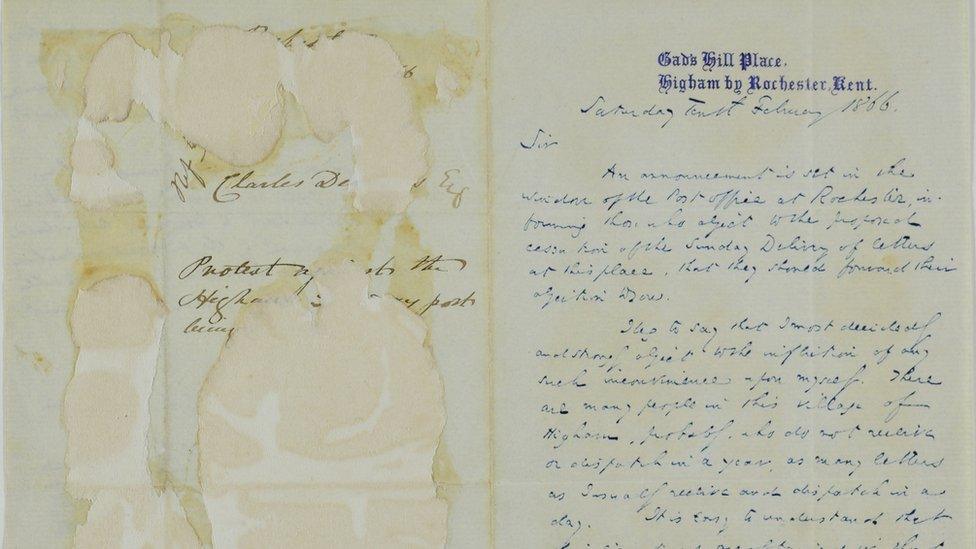 Charles D s Esq
Protest ag the
Higham post
being
Gad's Hill Place,
Higham by Rochester, Kent.
Saturday Tenth February 1866.
Sir
An announcement is set in the
window of the Post office at Rochester, in-
forming those who object to the proposed
cessation of the Sunday Delivery of letters
at this place, that they should forward their
objection to you.
I beg to say that I most decidedly
and strongly object to the infliction of any
such inconvenience upon myself. There
are many people in this village of
Higham, probably, who do not receive
or dispatch in a year, as many letters
as I usually receive and dispatch in a
day. It is easy to understand that